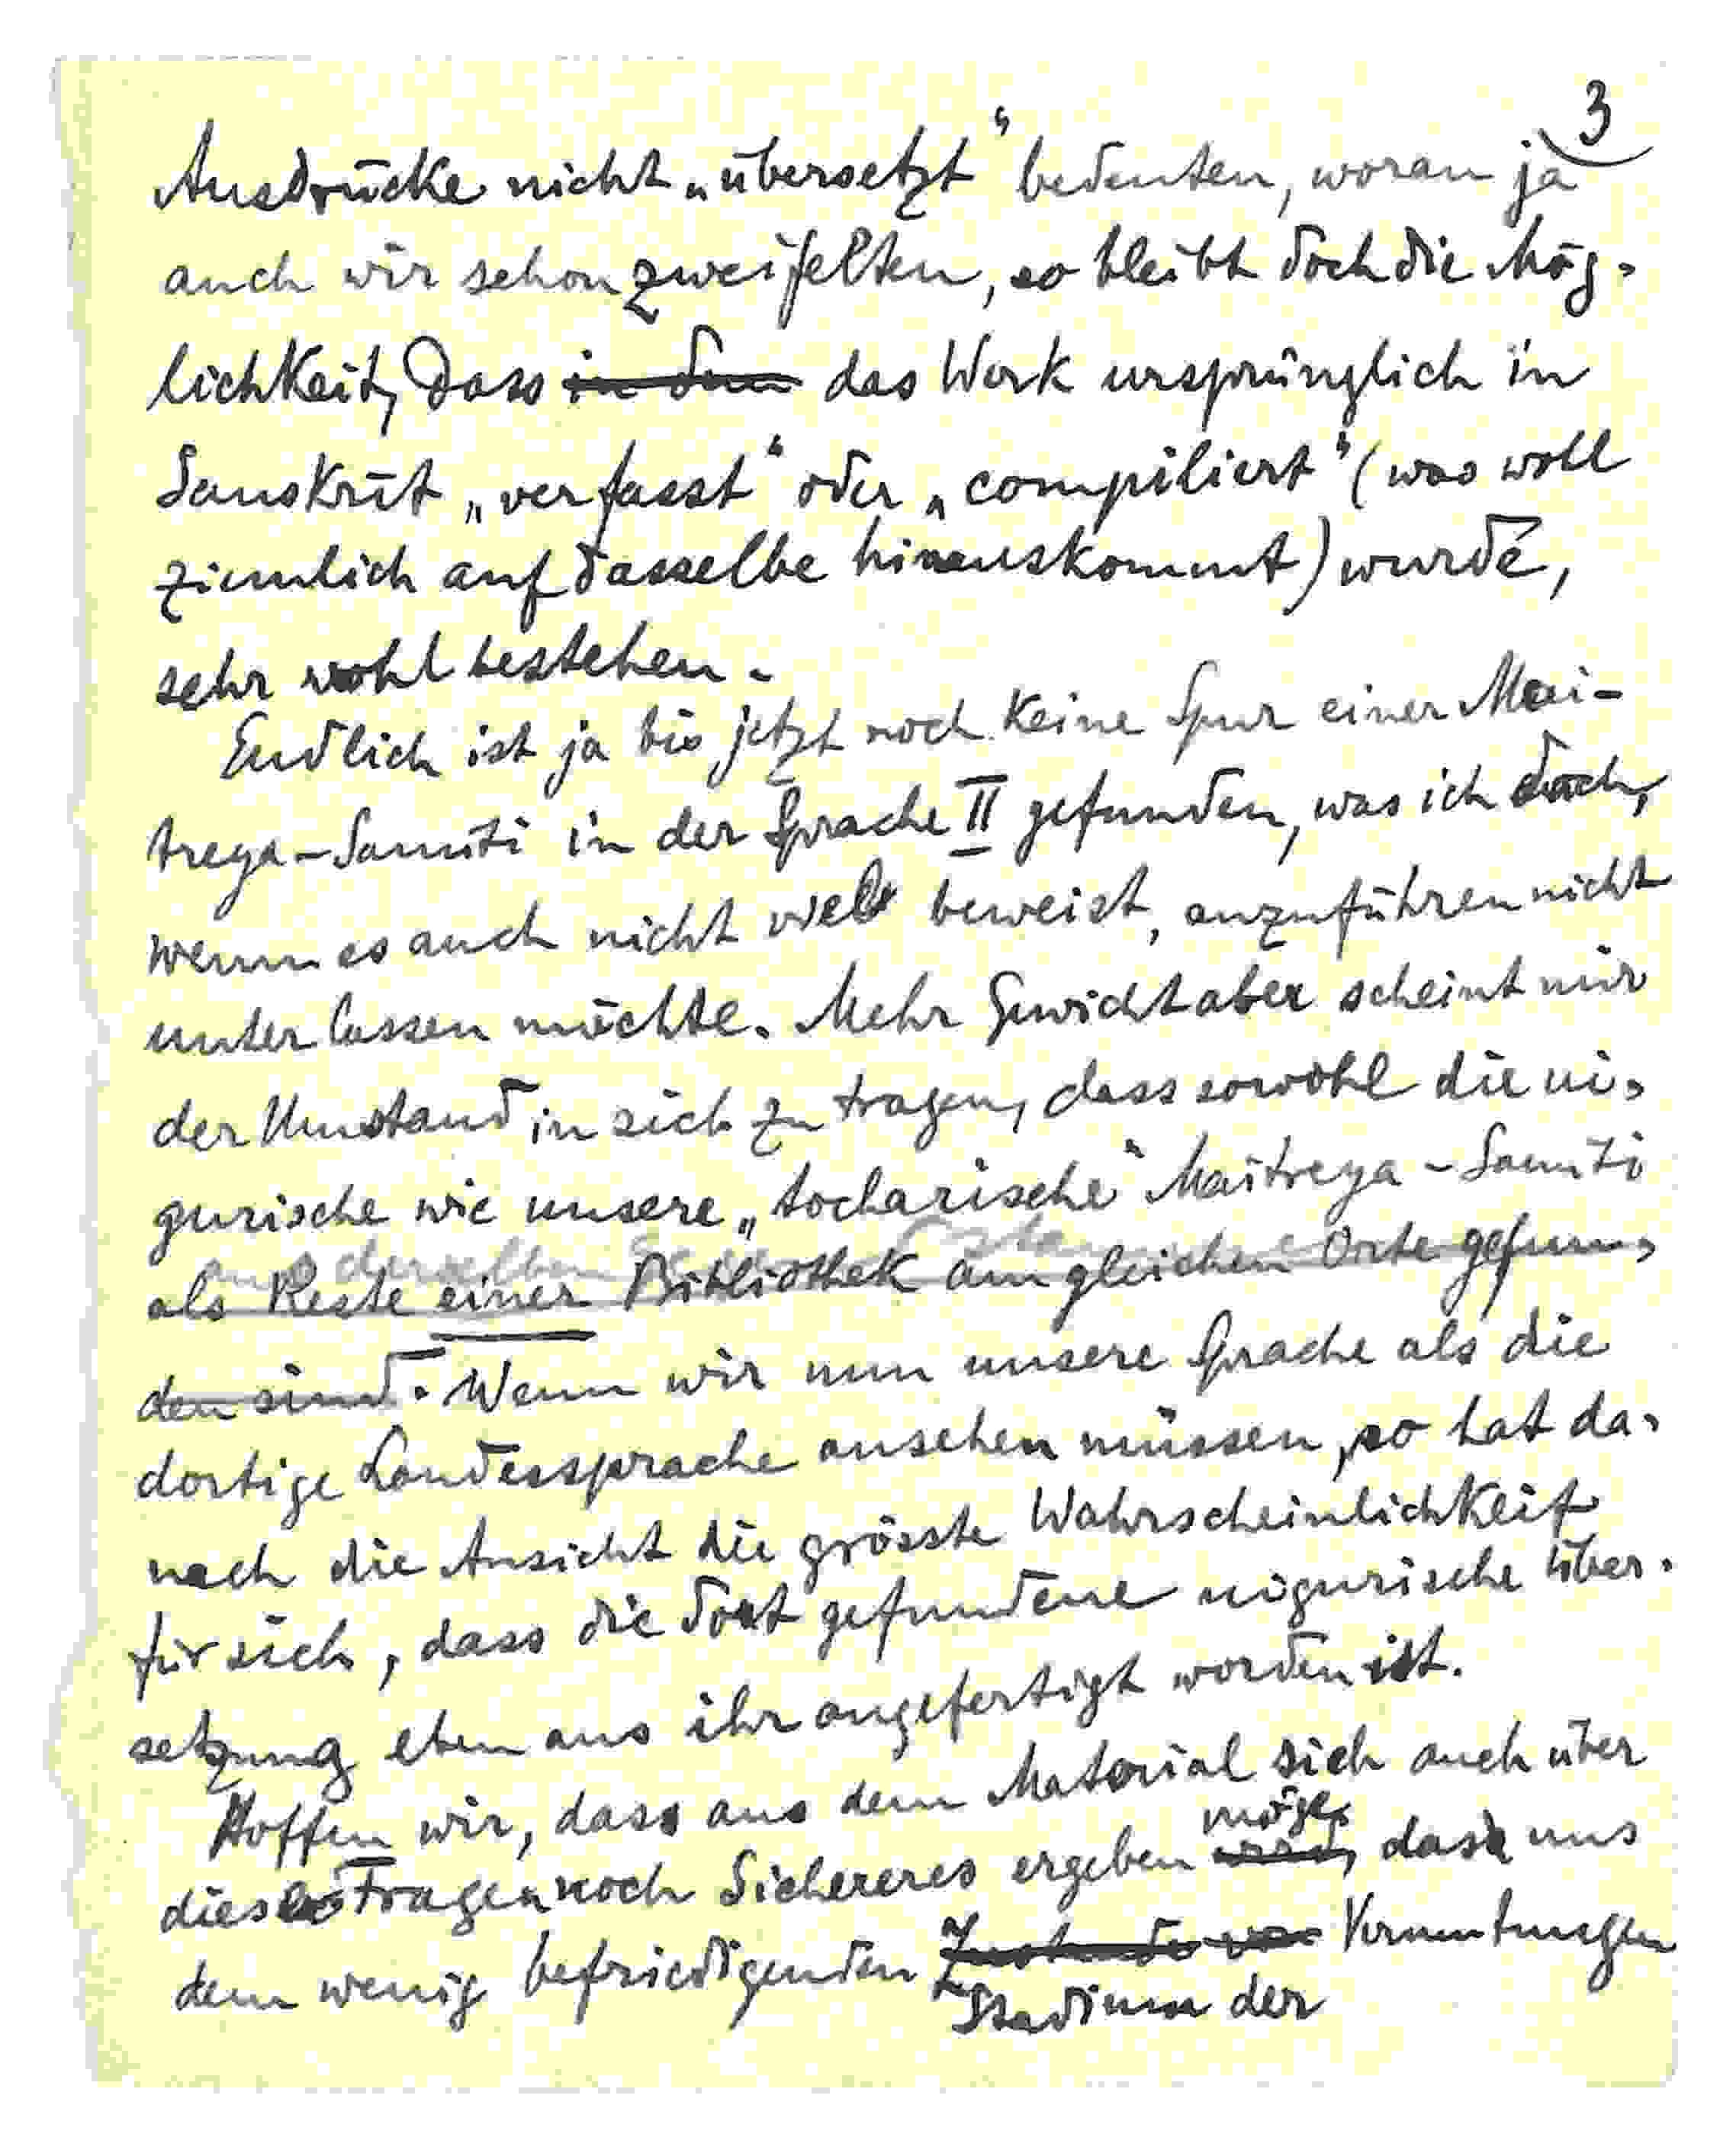 3
Ausdrücke nicht „übersetzt“ bedeuten, woran ja
auch wir schon zweifelten, so bleibt doch die Mög-
lichkeit, dass in dem das Werk ursprünglich in
Sanskrit „verfasst“ oder „compiliert“ (was wohl
ziemlich auf dasselbe hinauskommt) wurde,
sehr wohl bestehen.
Endlich ist ja bis jetzt noch keine Spur einer Mai-
treya-Samiti in der Sprache II gefunden, was ich doch,
wenn es auch nicht viel beweist, anzuführen nicht
unterlassen möchte. Mehr Gewicht aber scheint mir
der Umstand in sich zu tragen, dass sowohl die ui-
gurische wie unsere „tocharische“ Maitreya-Samiti
aus derselben
als Reste einer Bibliothek am gleichen Orte gefun-
den sind. Wenn wir nun unsere Sprache als die
dortige Landessprache ansehen müssen, so hat da-
nach die Ansicht die grösste Wahrscheinlichkeit
für sich, dass die dort gefundene uigurische Über-
setzung eben aus ihr angefertigt worden ist.
Hoffen wir, dass aus dem Material sich auch über
möge,
diese Fragen noch Sichereres ergeben wird, das uns
dem wenig befriedigenden Zustande von Vermutungen
Stadium der